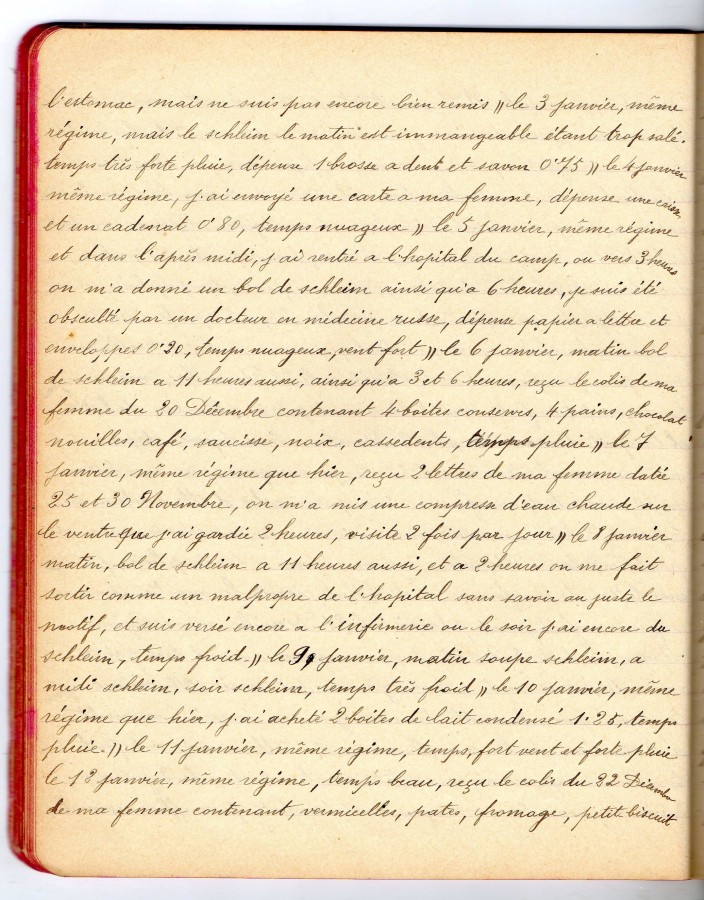 l'estomac, mais ne suis pas encore bien remis " le 3 janvier, même
régime, mais le schleim le matin est immangeable étant trop salé.
temps très forte pluie, dépense 1 brosse a dent et savon 0'75 " le 4 janvier
même régime, j'ai envoyé une carte a ma femme, dépense une
et un cadenat 0'80, temps nuageux " le 5 janvier, même régime
et dans l'après midi, j'ai rentré a l'hopital du camp, ou vers 3 heures
on m'a donné un bol de schleim ainsi qu'a 6 heures, je suis été
obsculté par un docteur en médecine russe, dépense papier a lettre et
enveloppes 0'20, temps nuageux, vent fort " le 6 janvier, matin bol
de schleim a 11 heures aussi, ainsi qu'a 3 et 6 heures, reçu le colis de ma
femme du 20 Décembre contenant 4 boites conserves, 4 pains, chocolat
nouilles, café, saucisse, noix, cassedents, temps pluie " le 7
janvier, même régime que hier, reçu 2 lettres de ma femme datié
25 et 30 Novembre, on m'a mis une compresse d'eau chaude sur
le ventre que j'ai gardée 2 heures, visite 2 fois par jour " le 8 janvier
matin, bol de schleim a 11 heures aussi, et a 2 heures on me fait
sortir comme un malpropre de l'hopital sans savoir au juste le
motif, et suis versé encore a l'infirmerie ou le soir j'ai encore du
schleim, temps froid " le 9, janvier, matin soupe schleim, a
midi schleim, soir schleim, temps très froid " le 10 janvier, même
régime que hier, j'ai acheté 2 boites de lait condensé 1'25, temps
pluie. " le 11 janvier, même régime, temps, fort vent et forte pluie
le 12 janvier, même régime, temps beau, reçu le colis du 22 Décembre
de ma femme contenant, vermicelles, pates, fromage, petit-biscuit